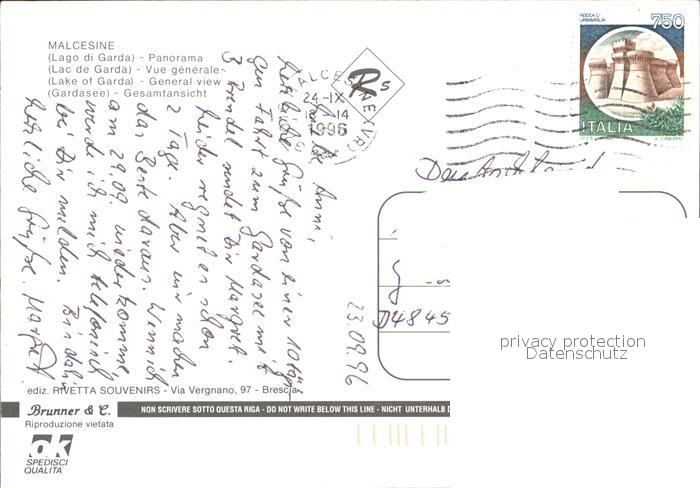 MALCESINE
(Lago di Garda) - Panorama
(Lac de Garda) - Vue générale
(Lake of Garda) - General view
(Gardasee) - Gesamtansicht
ROCCA DI
URBISAGLIA
750
ITALIA
24-IX
1996
Rs
Deutschland
D4845
privacy protection
Datenschutz
23.09.96
Anni,
herzliche Grüße von einer 10täg
gen Fahrt zum Gardasee mit
3 sendet Dir Margret.
Leider regnet es schon
2 Tage. Aber wir machen
das Beste daraus. Wenn ich
am 29.09. wieder komme
werde ich mich telefonisch
bei Dir melden. Bis dahin
herzliche Grüße. Margret
ediz. RIVETTA SOUVENIRS - Via Vergnano, 97 - Brescia
Brunner & C.
NON SCRIVERE SOTTO QUESTA RIGA - DO NOT WRITE BELOW THIS LINE - NICHT UNTERHALB D
Riproduzione vietata
ok
SPEDISCI
QUALITA'